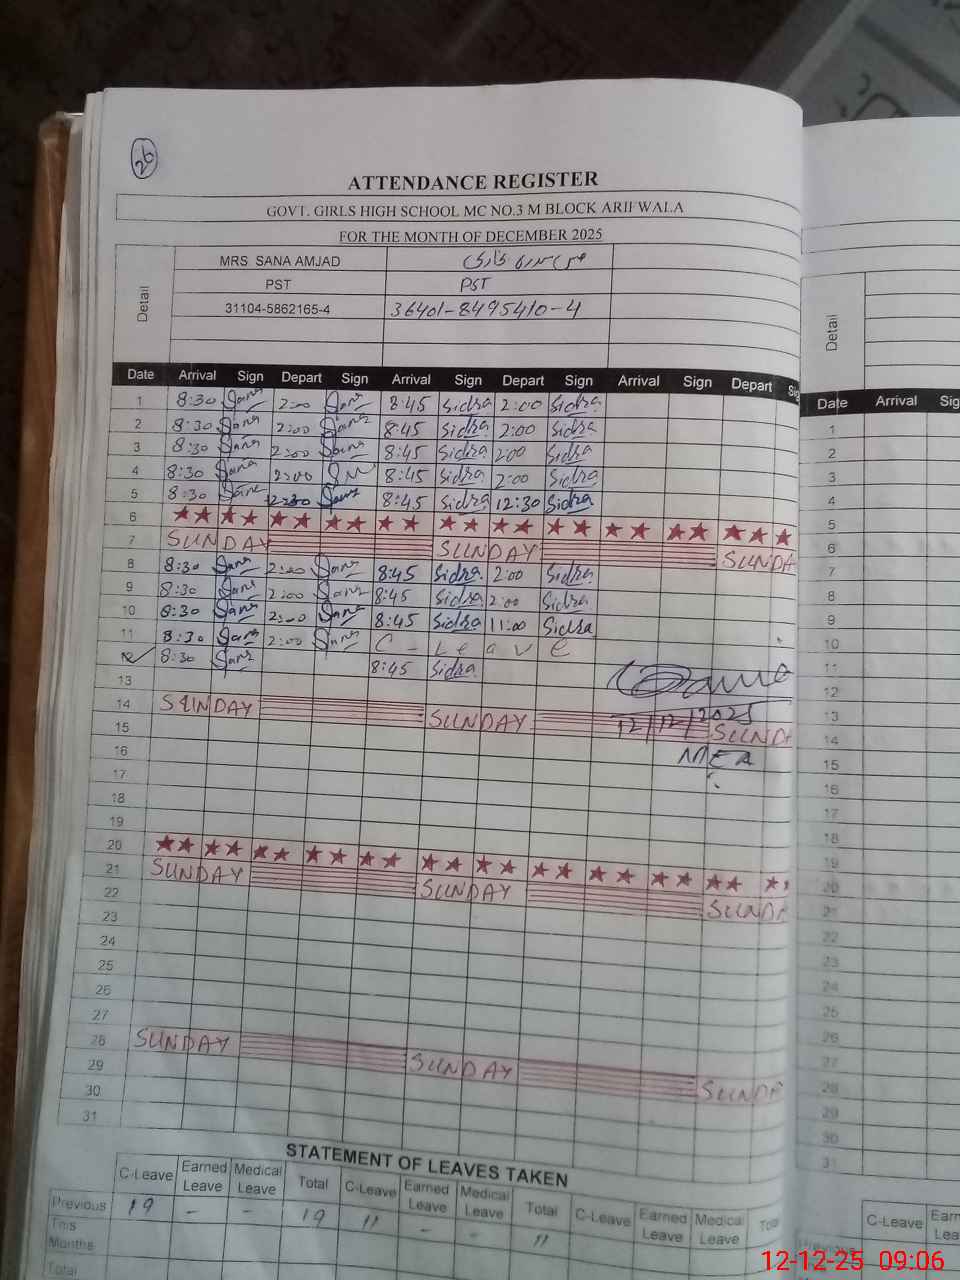 26
ATTENDANCE REGISTER
GOVT. GIRLS HIGH SCHOOL MC NO.3 M BLOCK ARIFWALA
FOR THE MONTH OF DECEMBER 2025
Detail MRS SANA AMJAD
PST PST
31104-5862165-4 36401-8495410-4
Date Arrival Sign Depart Sign Arrival Sign Depart Sign Arrival Sign Depart
1 8:30 Sana 2:00 Sana 8:45 Sidra 2:00 Sidra
2 8:30 Sana 2:00 Sana 8:45 Sidra 2:00 Sidra
3 8:30 Sana 2:00 Sana 8:45 Sidra 2:00 Sidra
4 8:30 Sana 2:00 8:45 Sidra 2:00 Sidra
5 8:30 Sana 12:30 Sana 8:45 Sidra 12:30 Sidra
6
7 SUNDAY SUNDAY SUNDA
8 8:30 Sana 2:00 Sana 8:45 Sidra 2:00 Sidra
9 8:30 Sana 2:00 Sana 8:45 Sidra 2:00 Sidra
10 8:30 Sana 2:00 Sana 8:45 Sidra 11:00 Sidra
11 8:30 Sana 2:00 Sana C - Leave
12 8:30 Sana 8:45 Sidra
13
14 SUNDAY SUNDAY SUNDA
12/12/2025
MEA
15
16
17
18
19
20
21 SUNDAY SUNDAY SUNDA
22
23
24
25
26
27
28 SUNDAY SUNDAY SUNDA
29
30
31
STATEMENT OF LEAVES TAKEN
C-Leave Earned Leave Medical Leave Total C-Leave Earned Leave Medical Leave Total C-Leave Earned Leave Medical Leave
Previous 19 - - 19 11 - - 11
This Months
Total
Detail
Date Arrival
1
2
3
4
5
6
7
8
9
10
11
12
13
14
15
16
17
18
19
20
21
22
23
24
25
26
27
28
29
30
31
C-Leave
Previous
12-12-25 09:06